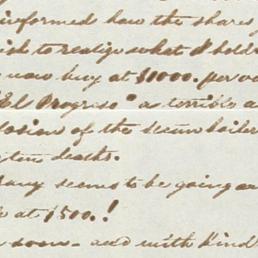 informed how the shares
to realize what I hold
now buy at $1000. per
"El Progreso" a terrible
of the steam boiler
ten deaths.
seems to be going on
at 1500.!
soon - and with kind